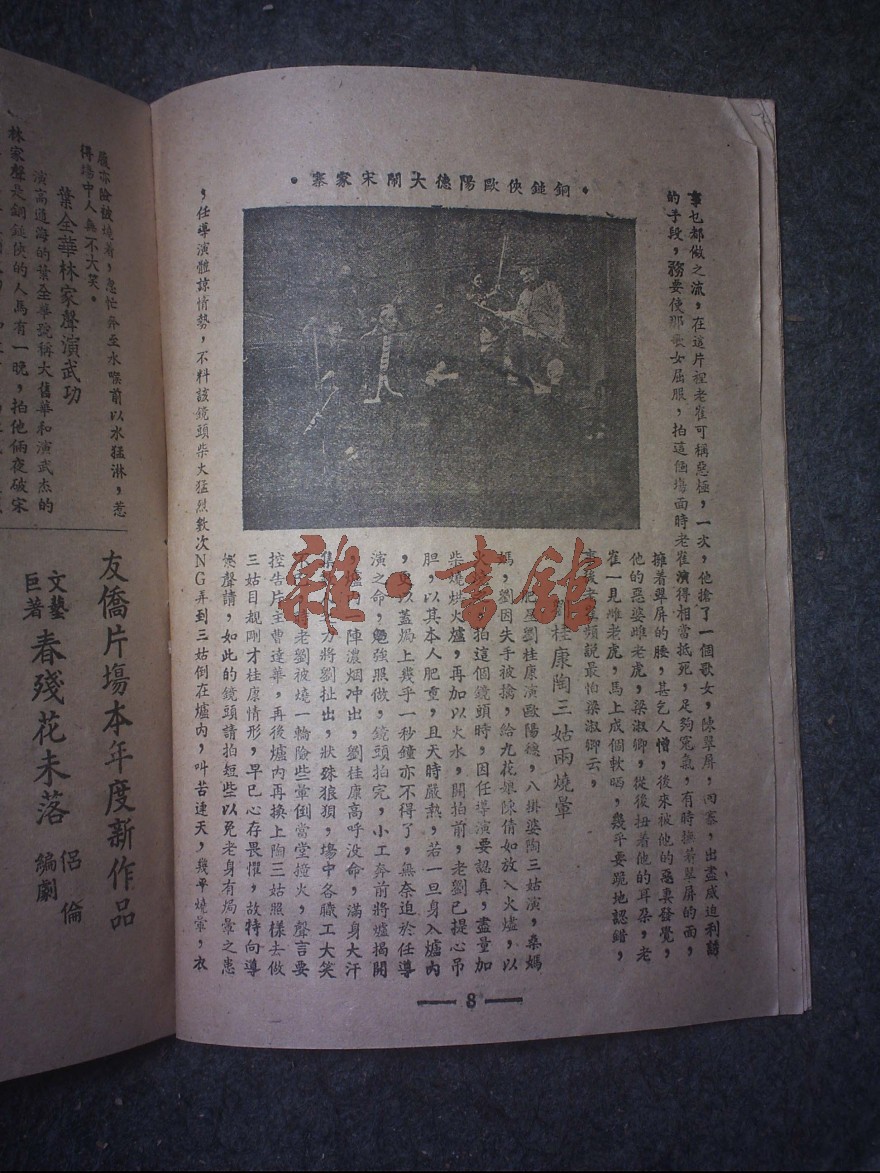 •銅鎚俠歐陽德大鬧宋家寨•
事乜都做之流，在這片裡老崔可稱惡極，一次，他搶了一個歌女，陳翠屏，回寨，出盡威迫利誘
的手段，務要使那歌女屈服，拍這個塲面時老崔演得相當抵死，足夠寃氣，有時撫着翠屏的面，
擁着翠屏的腰，甚乞人憎，後來被他的惡妻發覺，
他的惡婆雌老虎，梁淑卿，從後扭着他的耳朶，老
崔一見雌老虎，馬上成個軟晒，幾乎要跪地認錯，
頻說最怕梁淑卿云，
劉桂康陶三姑兩燒暈
星劉桂康演歐陽德，八掛婆陶三姑演，桑媽
媽，劉因失手被擒，給九花娘陳倩如放入火爐，以
拍這個鏡頭時，因任導演要認真，盡量加
柴燒烘火爐，再加以火水，開拍前，老劉已提心吊
胆，以其本人肥重，且天時嚴熱，若一旦身入爐內
，更以蓋焗上幾乎一秒鐘亦不得了，無奈迫於任導
演之命，勉強照做，鏡頭拍完，小工奔前將爐揭開
陣濃烟冲出，劉桂康高呼没命，滿身大汗
集 力將劉扯出，狀殊狼狽，塲中各職工大笑
老劉被燒一輪險些暈倒當堂撞火，聲言要
控告片主曹達華，再後爐內再換上陶三姑照樣去做
三姑目覩剛才桂康情形，早已心存畏懼，故特向導
聲請，如此的鏡頭請拍短些以免老身有焗暈之患
，任導演體諒情勢，不料該鏡頭柴火猛烈數次NG弄到三姑倒在爐內，叫苦連天，幾乎燒暈，衣
8
履亦險被燒着，急忙奔至水喉前以水猛淋，惹
得塲中人無不大笑。
葉全華林家聲演武功
演高通海的葉全華號稱大舊華和演武杰的
林家聲是銅鎚俠的人馬有一晚，拍他倆夜破宋
友僑片塲本年度新作品
文藝巨著
春殘花未落
侶倫編劇
雜·書館